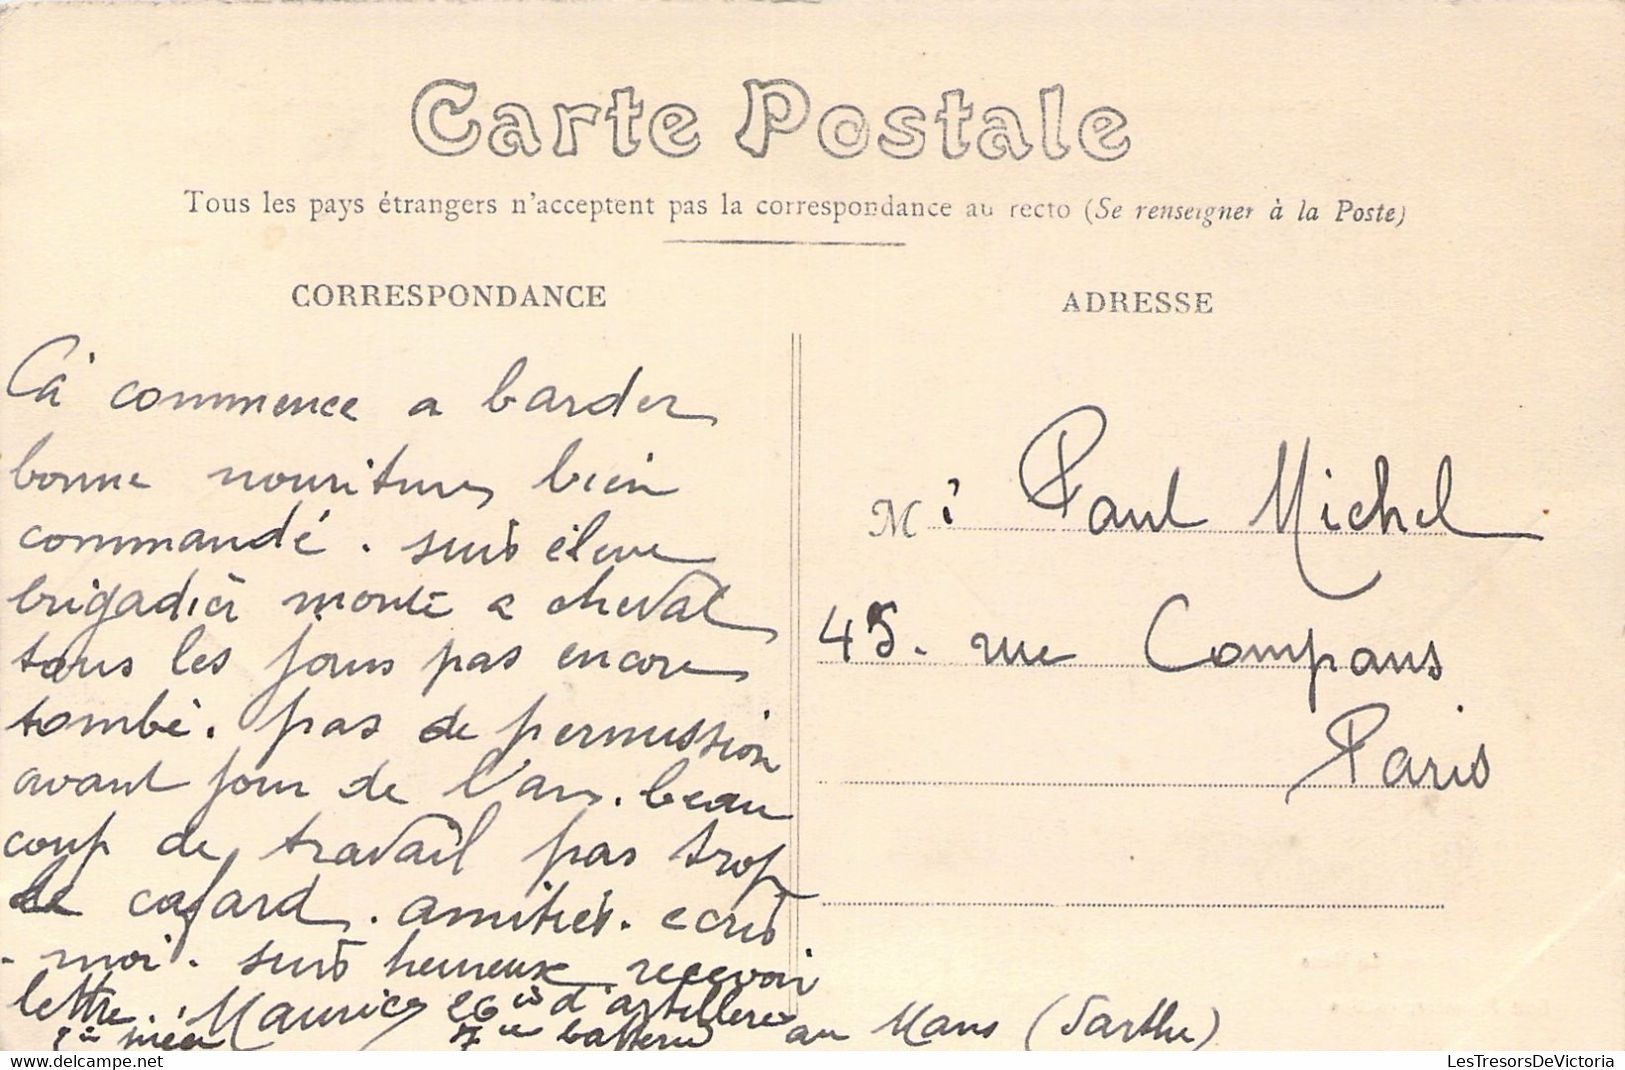 Carte Postale
Tous les pays étrangers n'acceptent pas la correspondance au recto (Se renseigner à la Poste)
CORRESPONDANCE
ADRESSE
Cà commence a barder
bonne nouriture bien
commandé. suis élève
brigadier monte a cheval
tous les jours pas encore
tombé. pas de permission
avant jour de l'an. beau
coup de travail pas trop
de cafard. amitiés. ecris
-moi. suis heureux recevoir
lettre. Maurice 26 is d'artillerie
7 ie batterie au Mans (Sarthe)
Mr Paul Michel
45. rue Compans
Paris
LesTresorsDeVictoria